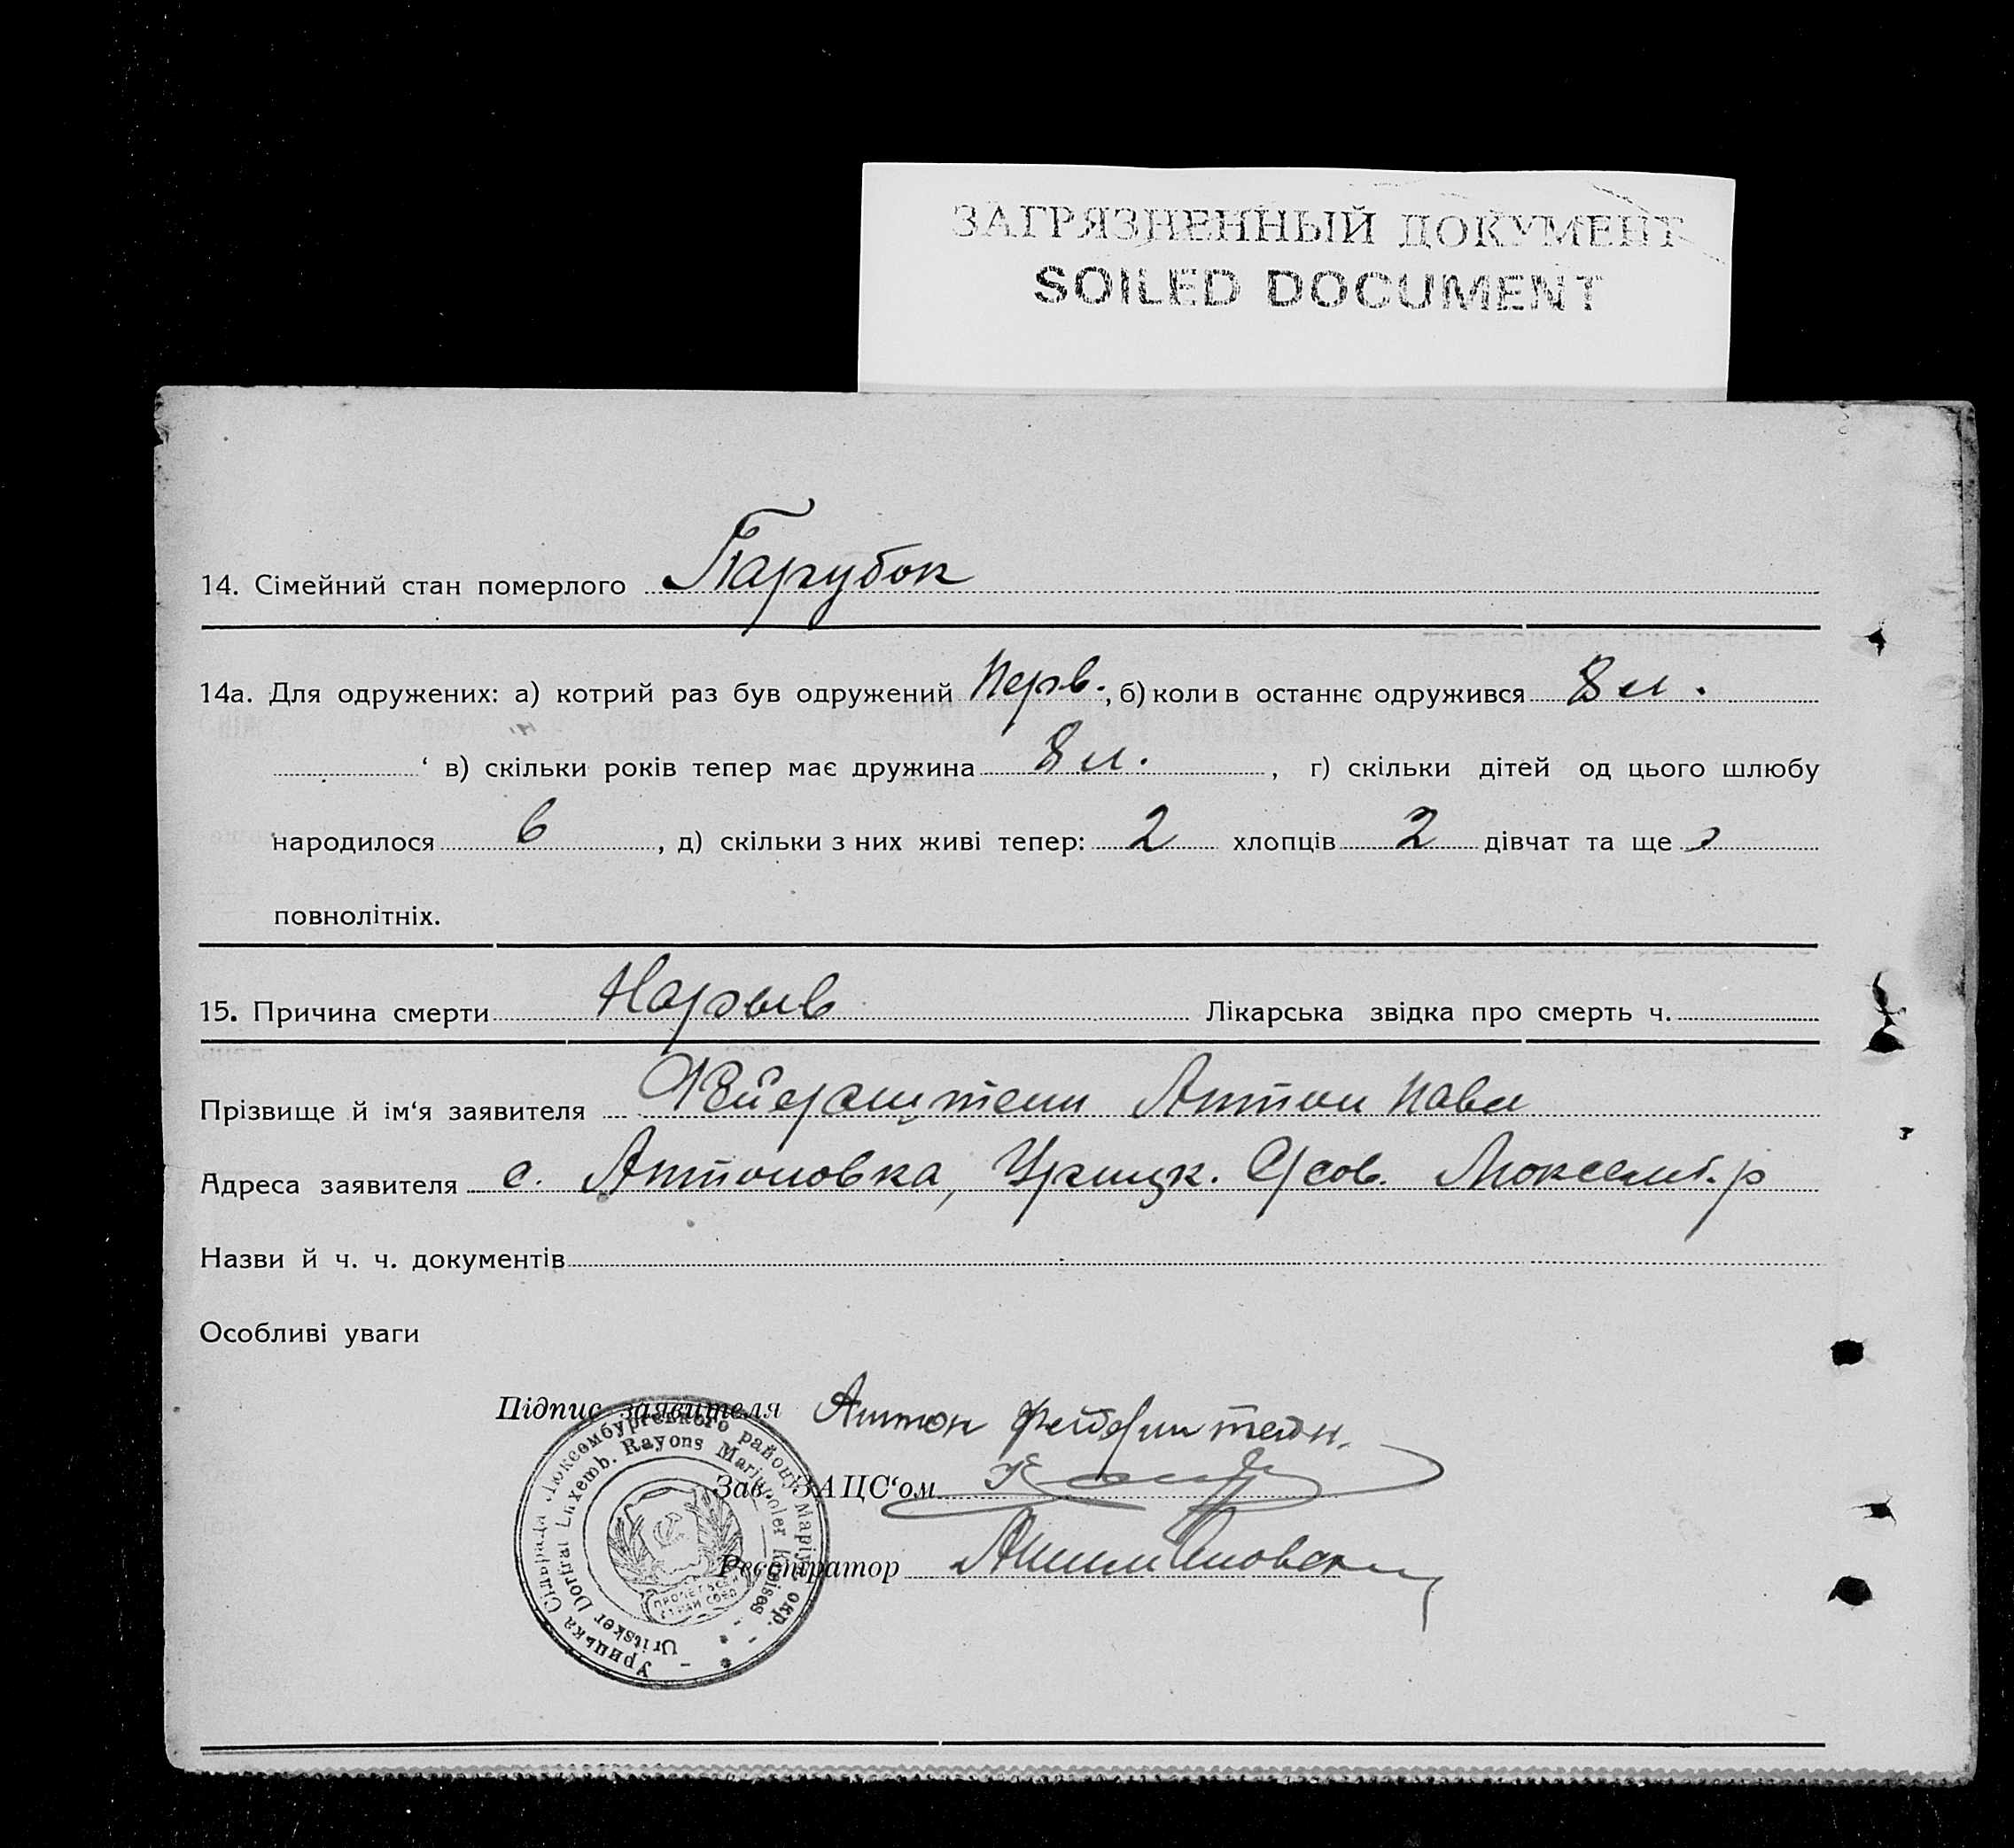 ЗАГРЯЗНЕННЫЙ ДОКУМЕНТ
SOILED DOCUMENT
14. Сімейний стан померлого Парубок
14а. Для одружених: а) котрий раз був одружений Перв., б) коли в останнє одружився 8 л.
‘ в) скільки років тепер має дружина 8 л. , г) скільки дітей од цього шлюбу
народилося 6 , д) скільки з них живі тепер: 2 хлопців 2 дівчат та ще
повнолітніх.
15. Причина смерти Нарыв Лікарська звідка про смерть ч.
Прізвище й ім‘я заявителя Антон Павл
Адреса заявителя с. Антоновка, Урицк. С/сов. Люксемб. р
Назви й ч. ч. документів
Особливі уваги
Підпис заявителя Антон Фейерштейн.
Зав. ЗАЦС‘ом
Реєстратор
Урицька Сільрада Люксембургського району Маріуп. окр.
Uritsker Dorfrat Luxemb. Rayons Mariupoler Kreises
ПРОЛЕТАРІ